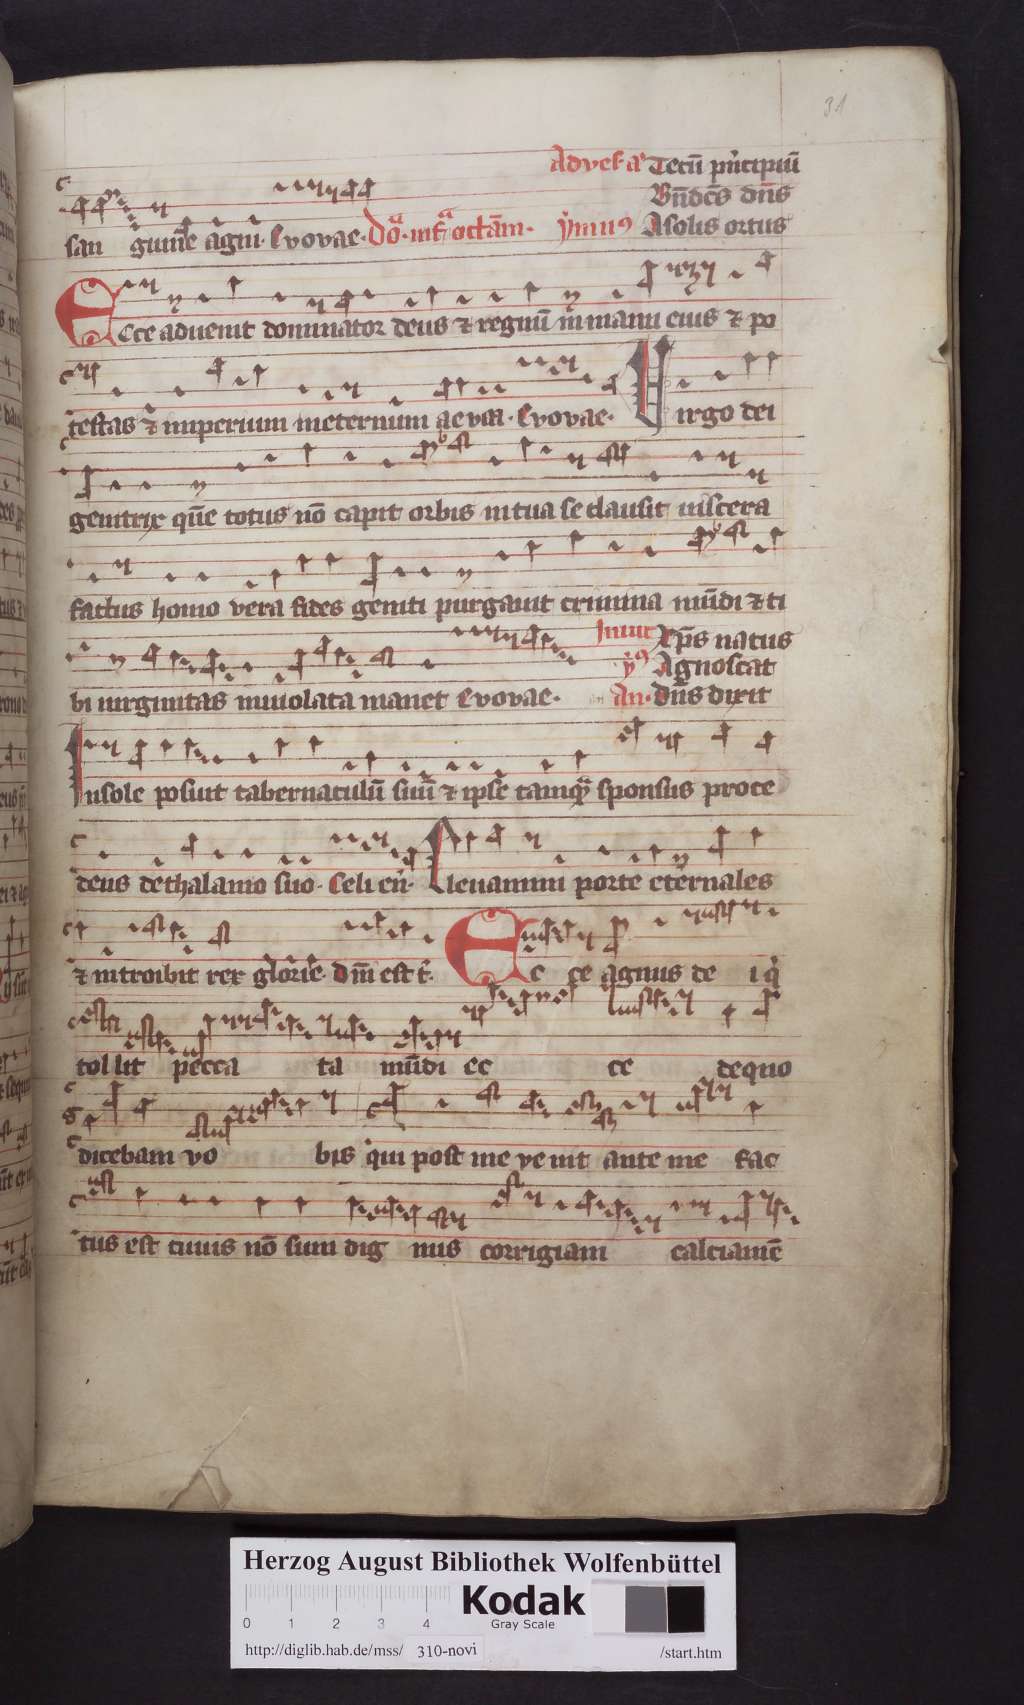 31
Ad vesꝑas Tecū pͥncipiū
Bn̄dc̄s dn̄s
san guinē agni. Evovae. Doᵃ. infᵃ octām. ẏmnꝰ A solis ortus
Ecce advenit dominator deus ⁊ regnū in manu eius ⁊ po
testas ⁊ imperium in eternum aevia. Evovae. Virgo dei
genitrix quē totus nō capit orbis in tua se clausit viscera
factus homo vera fides geniti purgavit crimina mūdi ⁊ ti
bi virginitas inviolata manet Evovae.
Invit Xp̄s natus
ẏꝰ Agnoscat
An. dn̄s dixit
In sole posuit tabernaculū suū ⁊ ipse tamqᵃ sponsus proce
dens de thalamo suo. Celi en̄. Elevamini porte eternales
⁊ introibit rex glorie. Dm̄ est t̄. Ec ce agnus de i qͥ
tol lit pecca ta mūdi ec ce de quo
dicebam vo bis qui post me ve nit ante me fac
tus est cuius nō sum dig nus corrigiam calciamē
Herzog August Bibliothek Wolfenbüttel
0 1 2 3 4
Kodak
Gray Scale
http://diglib.hab.de/mss/ 310-novi /start.htm